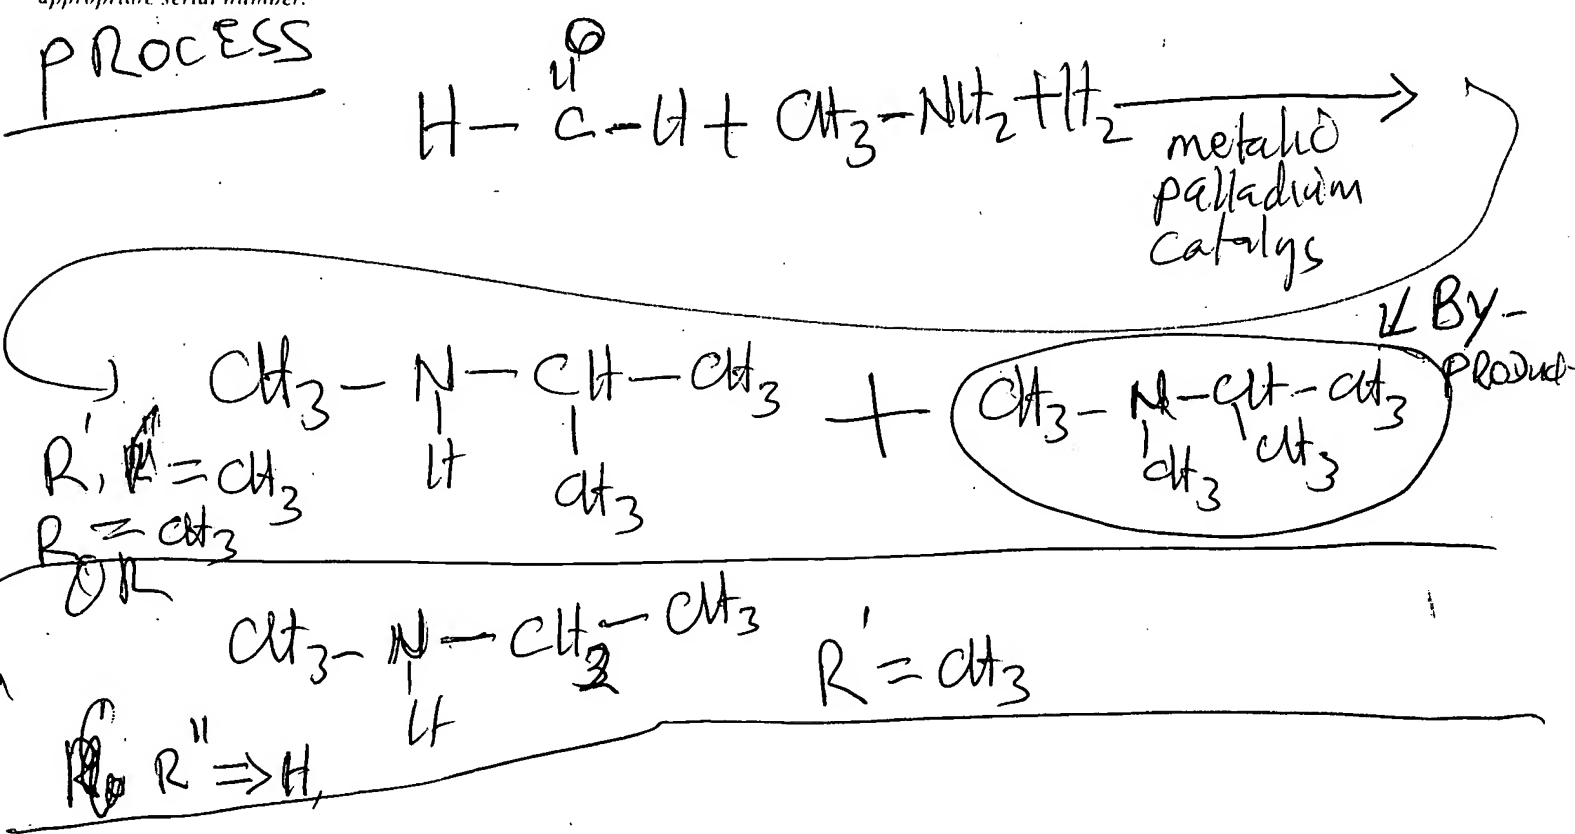 appropriate serial number.
PROCESS
O
H – C – H + CH3 – NH2 + H2
metallic
palladium
catalys
CH3 – N – CH – CH3 + CH3 – N – CH – CH3
H CH3 CH3 CH3
By-
PRODUCT
R', R'' = CH3
R = CH3
OR
CH3 – N – CH2 – CH3
H
R' = CH3
R'' ⇒ H,